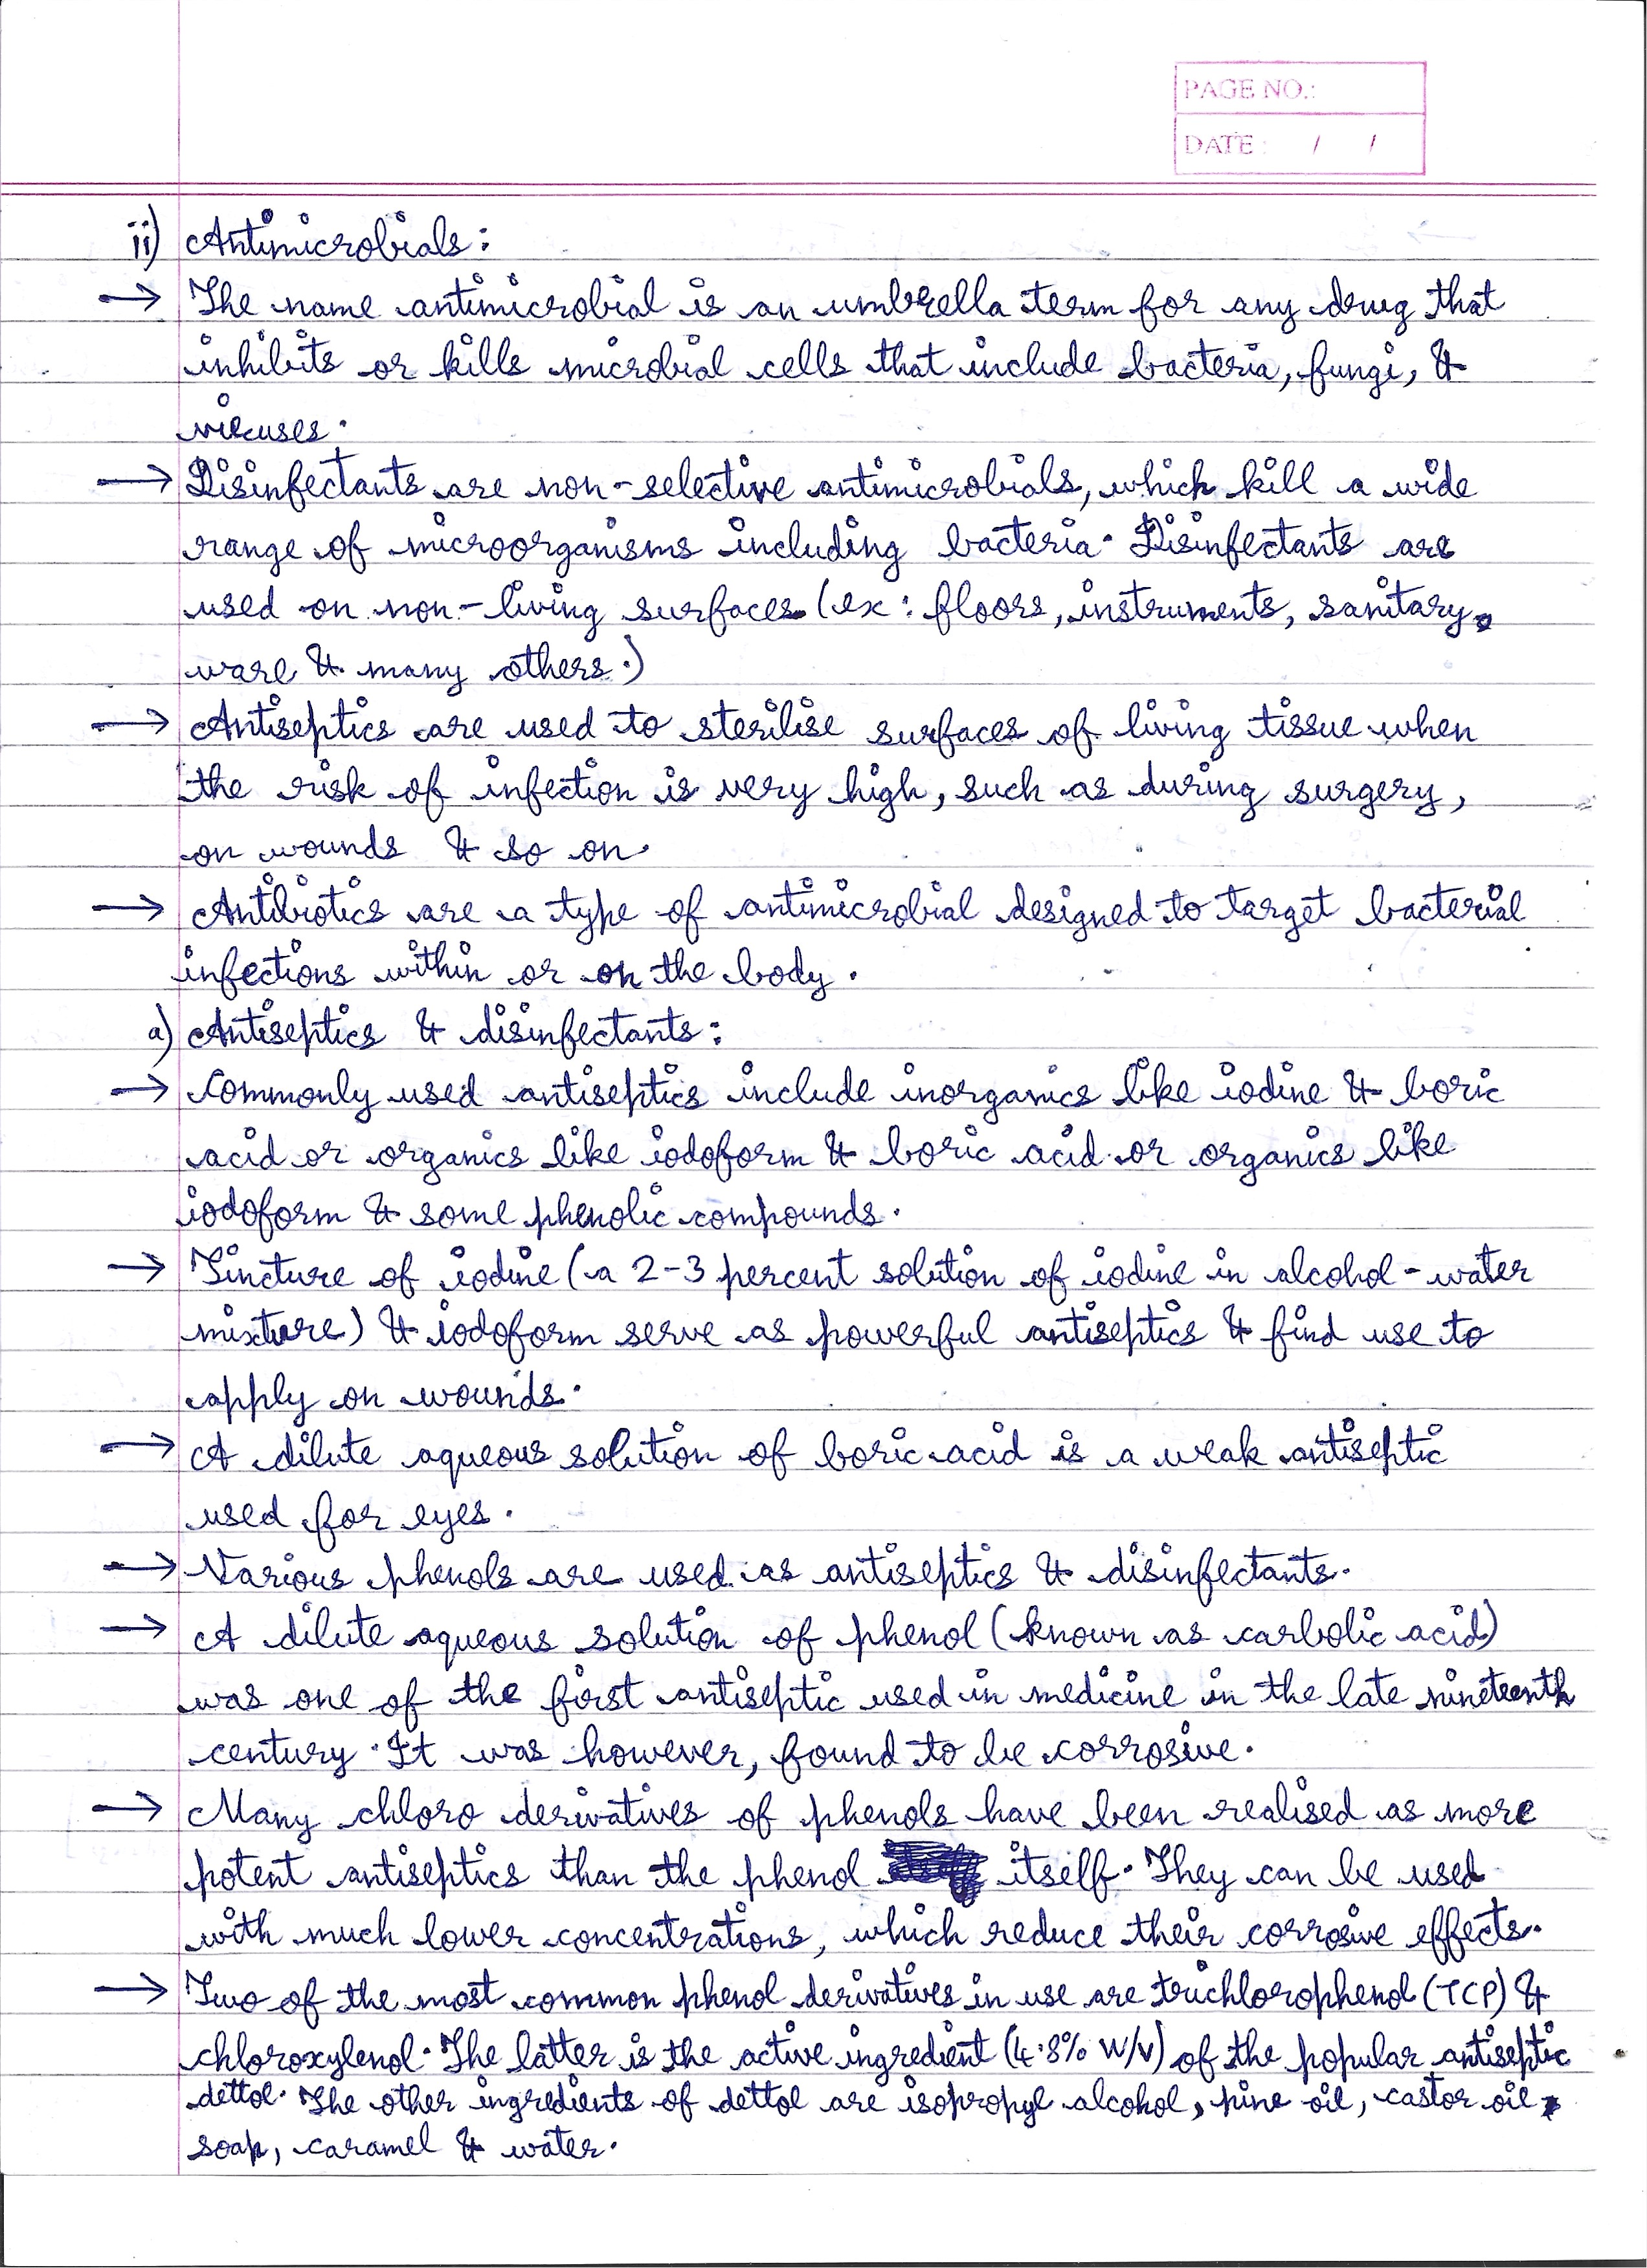 PAGE NO.:
DATE: / /
ii) Antimicrobials:
→ The name antimicrobial is an umbrella term for any drug that
inhibits or kills microbial cells that include bacteria, fungi, &
viruses.
→ Disinfectants are non-selective antimicrobials, which kill a wide
range of microorganisms including bacteria. Disinfectants are
used on non-living surfaces (ex: floors, instruments, sanitary
ware & many others.)
→ Antiseptics are used to sterilise surfaces of living tissue when
the risk of infection is very high, such as during surgery,
on wounds & so on.
→ Antibiotics are a type of antimicrobial designed to target bacterial
infections within or on the body.
a) Antiseptics & disinfectants:
→ Commonly used antiseptics include inorganics like iodine & boric
acid or organics like iodoform & boric acid or organics like
iodoform & some phenolic compounds.
→ Tincture of iodine (a 2-3 percent solution of iodine in alcohol-water
mixture) & iodoform serve as powerful antiseptics & find use to
apply on wounds.
→ A dilute aqueous solution of boric acid is a weak antiseptic
used for eyes.
→ Various phenols are used as antiseptics & disinfectants.
→ A dilute aqueous solution of phenol (known as carbolic acid)
was one of the first antiseptic used in medicine in the late nineteenth
century. It was however, found to be corrosive.
→ Many chloro derivatives of phenols have been realised as more
potent antiseptics than the phenol itself. They can be used
with much lower concentrations, which reduce their corrosive effects.
→ Two of the most common phenol derivatives in use are trichlorophenol (TCP) &
chloroxylenol. The latter is the active ingredient (4.8% W/v) of the popular antiseptic
dettol. The other ingredients of dettol are isopropyl alcohol, pine oil, castor oil,
soap, caramel & water.